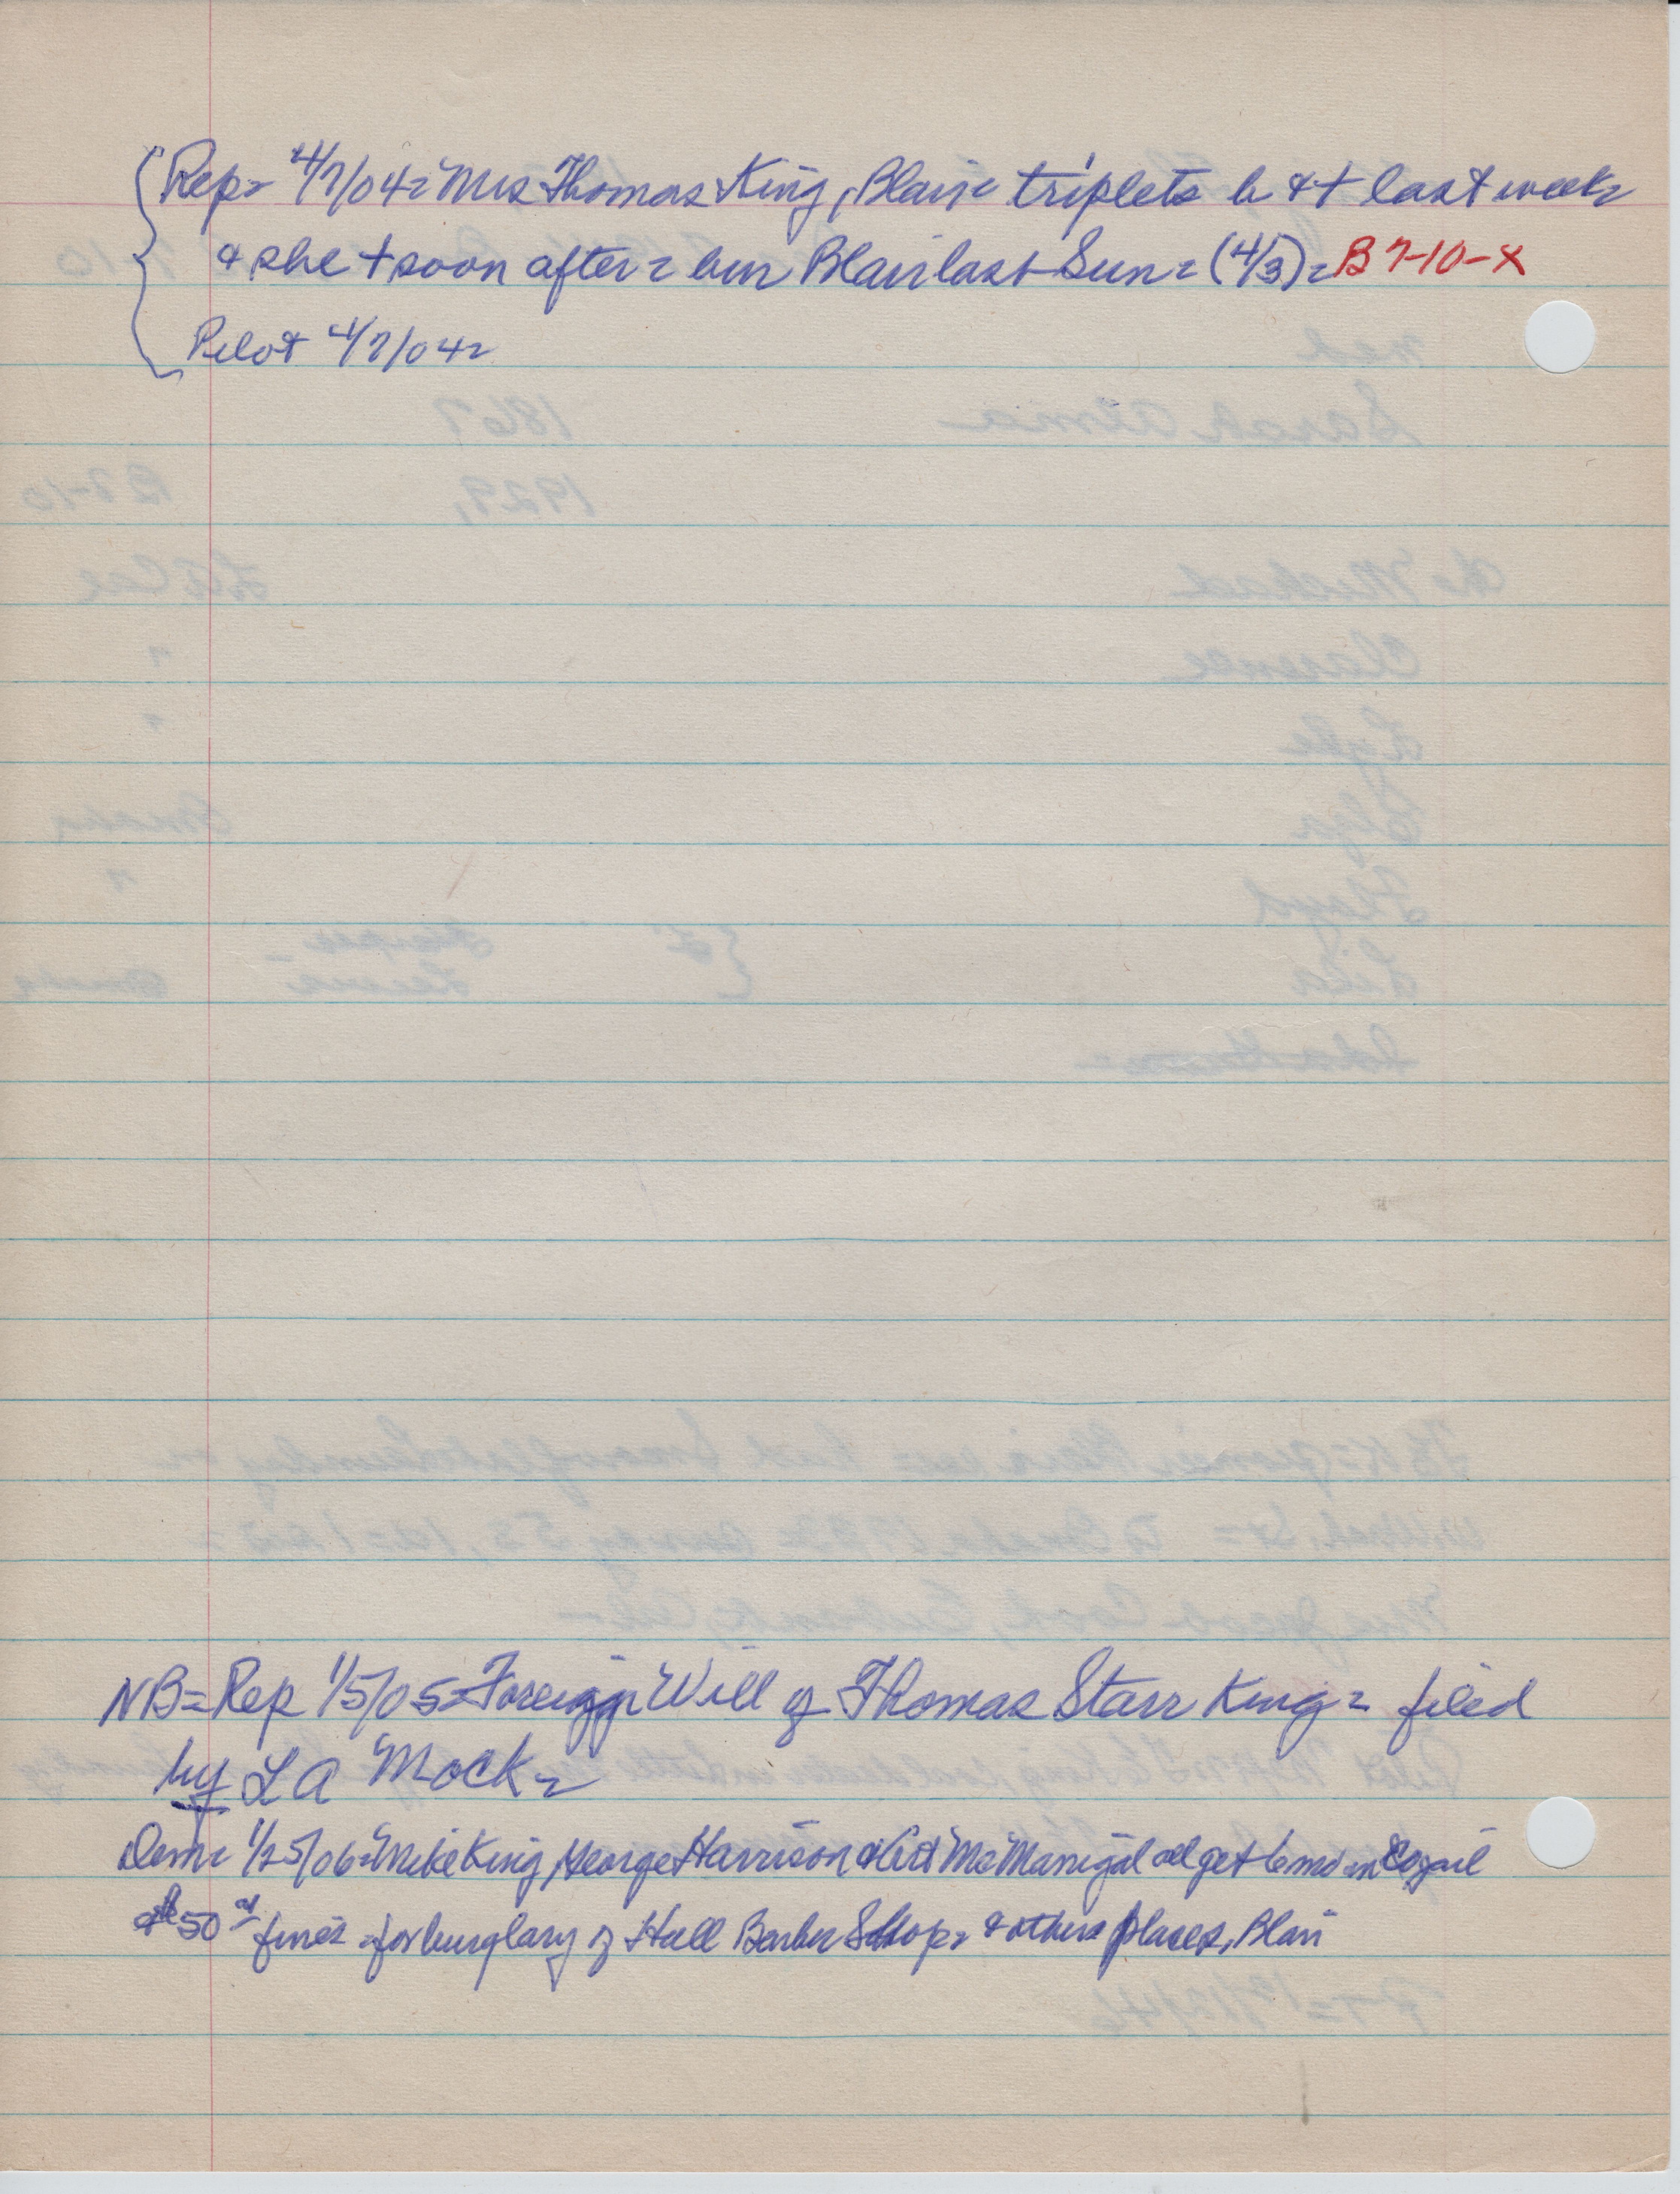 Rep= 4/7/04= Mrs Thomas King, Blair= triplets b & † last week=
& she † soon after= bur Blair last Sun= (4/3)= B 7-10-X
Pilot 4/7/04=
NB= Rep 1/5/05= Foreign Will of Thomas Starr King= filed
by L A Mock=
Dem= 1/25/06= Mike King, George Harrison & Art McManigal all get 6 mo in Co jail
& $50 fines for burglary of Hall Barber Shop= & others places, Blair